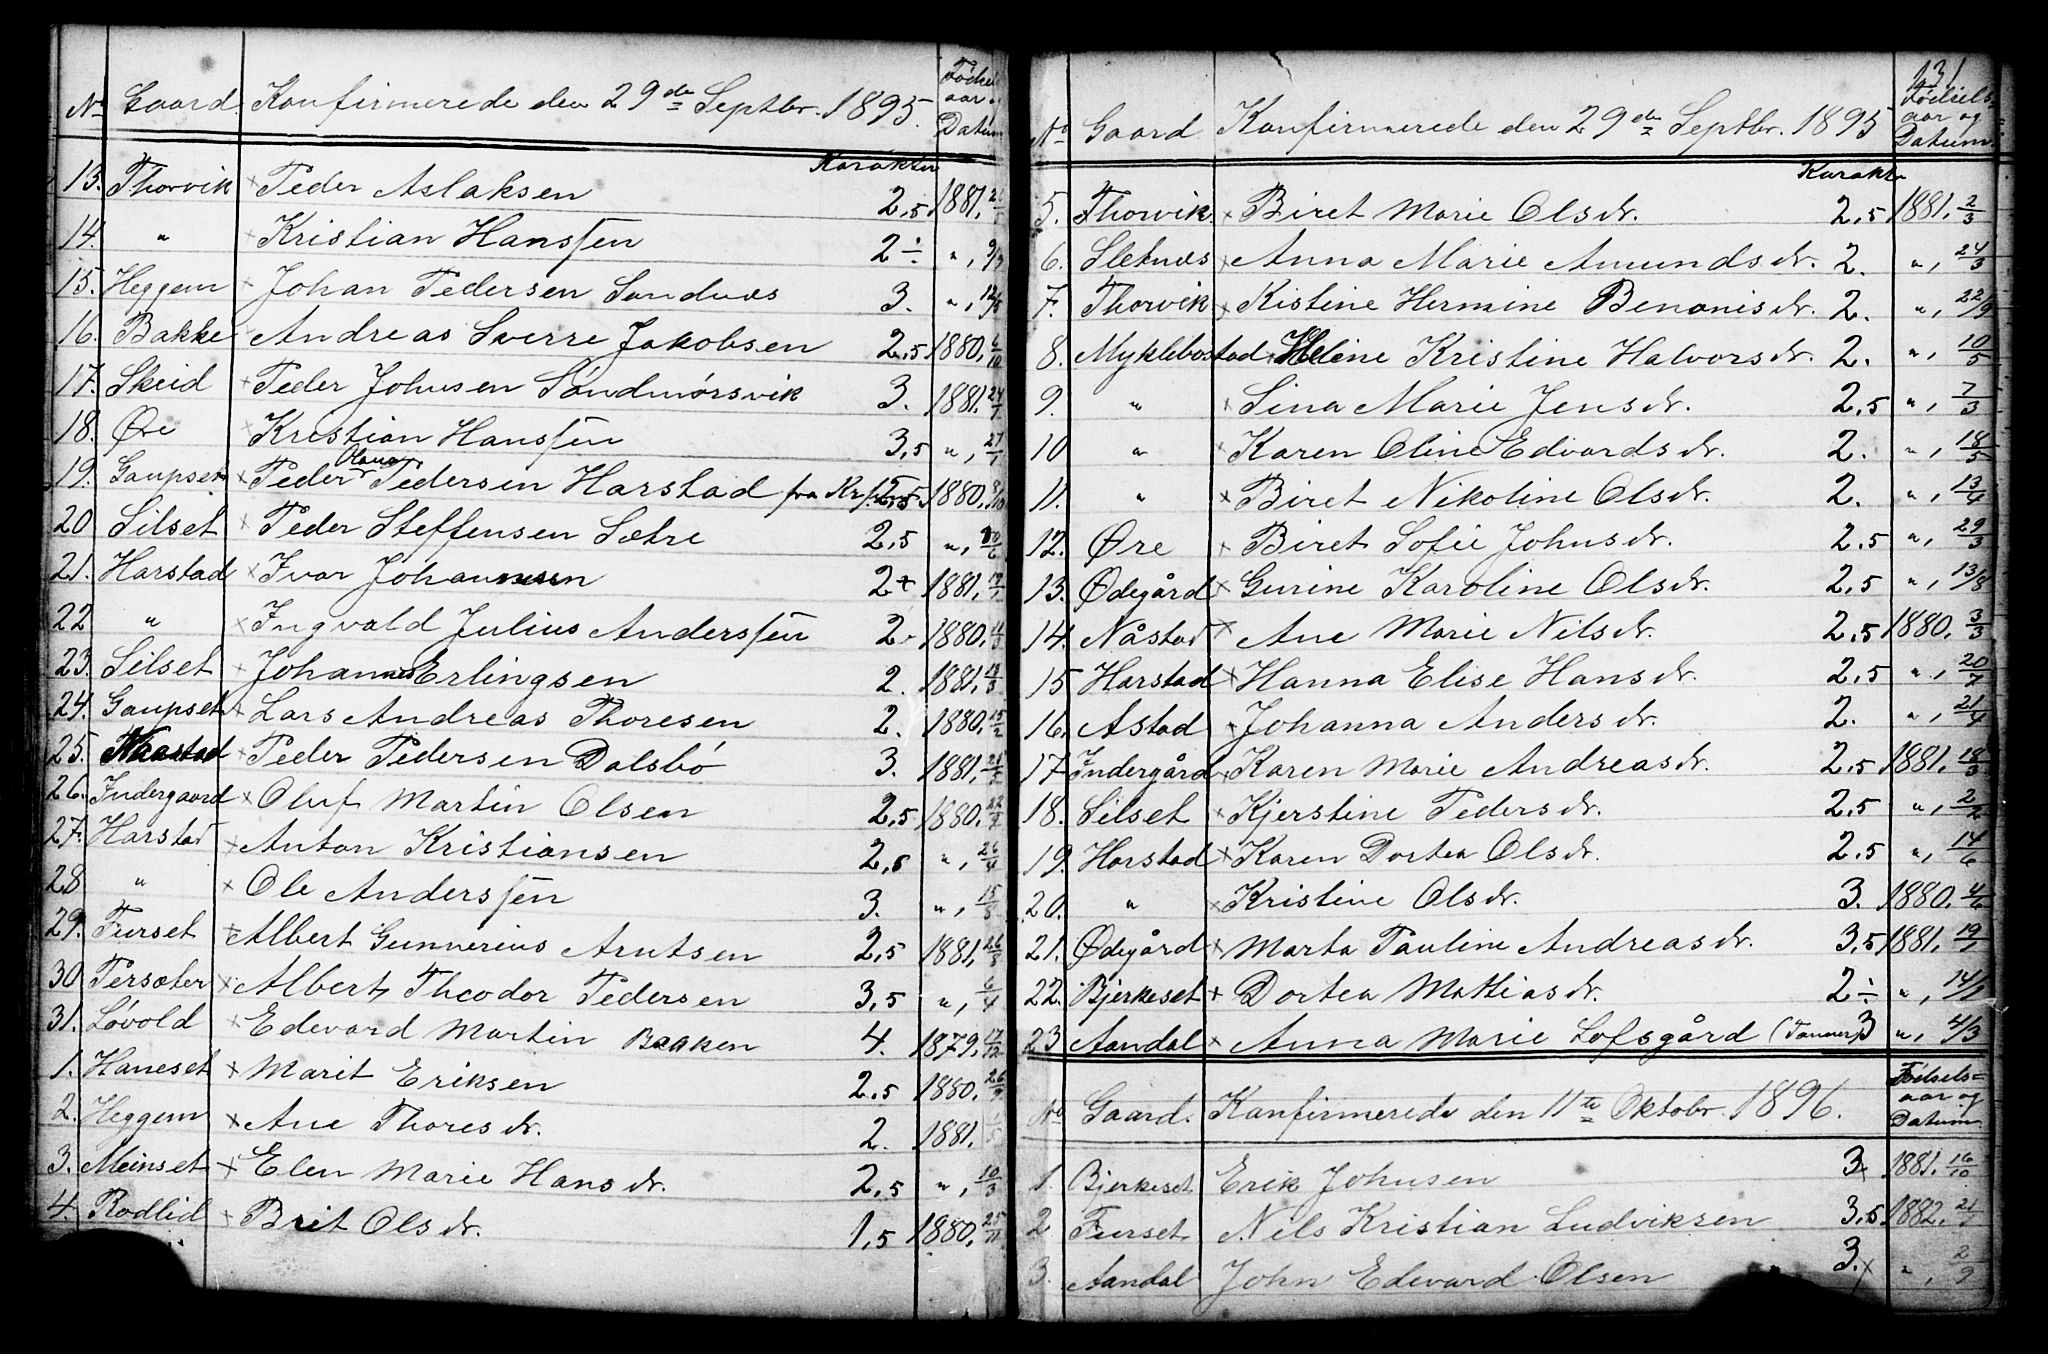 No Gaard. Konfirmerede den 29de Septbr. 1895. Fødsels aar og Datum
Karakter
13. Thorvik × Peder Aslaksen 2,5 1881,
14. " × Kristian Hanssen 2÷ ",
15. Heggem × Johan Pedersen Sandnæs 3. ",
16. Bakke × Andreas Sverre Jakobsen 2,5 1880,
17. Skeid × Peder Johnsen Søndmørsvik 3. 1881, 24/7
18. Øre × Kristian Hanssen 3,5 ",
19. Gaupset × Peder Olaus Pedersen Harstad fra 2,5 1880,
20 Silset × Peder Steffensen Sætre 2,5 ",
21. Harstad × Ivar Johannesen 2+ 1881,
22 " × Ingvald Julius Anderssen 2. 1880,
23. Silset × Johannes Erlingsen 2. 1881,
24. Gaupset × Lars Andreas Thoresen 2. 1880, 15/2
25. Naastad × Peder Pedersen Dalsbö 3. 1881,
26. Indergaard × Oluf Martin Olsen 2,5 1880,
27. Harstad × Anton Kristiansen 2,5 ", 26/4
28 " × Ole Anderssen 3. ", 15/8
29. Furset × Albert Gunnerius Arntsen 2,5 1881,
30 Persæter × Albert Theodor Pedersen 3,5 ", 6/4
31. Løvold × Edevard Martin Baaken 4. 1879, 17/12
1. Haneset × Marit Eriksen 2,5 1880, 26/9
2. Heggem × Ane Thoresdr. 2. 1881.
3. Meinset × Elen Marie Hansdr. 2,5 ", 10/3
4. Rødlid × Brit Olsdr. 1,5 1880, 25/11
131
No Gaard Konfirmerede den 29de Septbr. 1895 Fødsels- aar og Datum.
Karakter
5. Thorvik × Biret Marie Olsdr. 2,5 1881, 2/3
6. Sletnæs × Anna Marie Amundsdr. 2. ", 24/3
7. Thorvik × Kistine Hermine Benonisdr. 2. ", 22/9
8. Myklebostad × Heline Kristine Halvorsdr. 2. ", 10/5
9. " × Sina Marie Jensdr. 2,5 ", 7/3
10 " × Karen Oline Edvardsdr. 2. ", 18/5
11. " × Biret Nikoline Olsdr. 2. ", 13/4
12. Øre × Biret Sofie Johnsdr. 2,5 ", 29/3
13. Ødegård × Gurine Karoline Olsdr. 2,5 ", 13/8
14. Nåstad × Ane Marie Nilsdr. 2,5 1880, 3/3
15 Harstad × Hanna Elise Hansdr. 2,5 ", 20/7
16. Astad × Johanna Andersdr. 2. ", 21/4
17 Indergård × Karen Marie Andreasdr. 2,5 1881, 18/3
18. Silset × Kjerstine Pedersdr. 2,5 ", 2/2
19. Harstad × Karen Dortea Olsdr. 2,5 ", 14/6
20. " × Kristine Olsdr. 3. 1880, 4/6
21. Ødegård × Marta Pauline Andreasdr. 3,5 1881, 19/1
22. Bjerkeset × Dortea Mathiasdr. 2÷ ", 14/1
23 Aandal × Anna Marie Lofsgård 3 ", 4/3
No Gaard. Konfirmerede den 11te Oktobr. 1896. Fødsels= aar og Datum
1. Bjerkeset Erik Johnsen 3. 1881, 16/10
2 Furset Nils Kristian Ludviksen 3,5 1882,
3. Aandal John Edevard Olsen 3. × ", 2/9